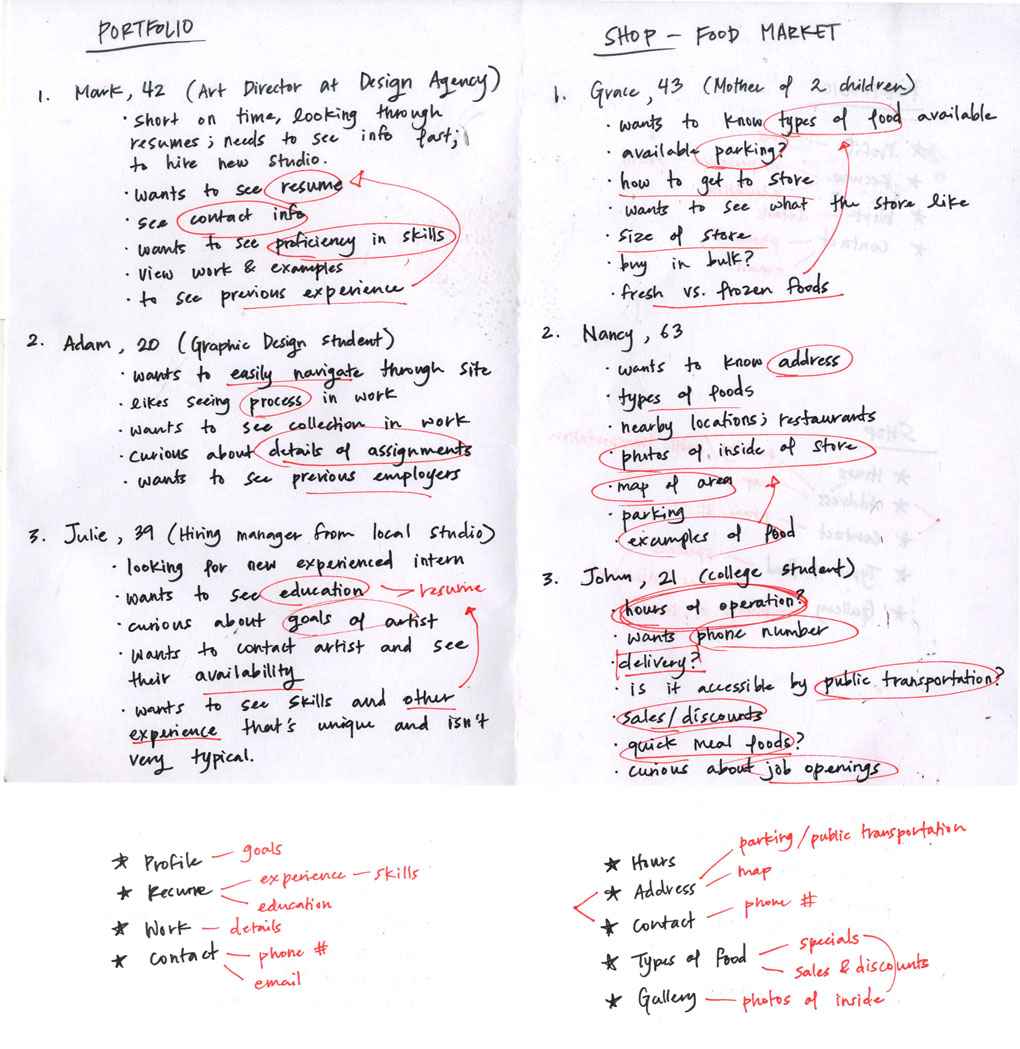 PORTFOLIO
1. Mark, 42 (Art Director at Design Agency)
· short on time, looking through
resumes; needs to see info fast;
to hire new studio.
· wants to see resume
· see contact info
· wants to see proficiency in skills
· view work & examples
· to see previous experience
2. Adam, 20 (Graphic Design student)
· wants to easily navigate through site
· likes seeing process in work
· wants to see collection in work
· curious about details of assignments
· wants to see previous employers
3. Julie, 39 (Hiring manager from local studio)
· looking for new experienced intern
· wants to see education → resume
· curious about goals of artist
· wants to contact artist and see
their availability
· wants to see skills and other
experience that's unique and isn't
very typical.
★ Profile — goals
★ Resume
experience — skills
education
★ Work — details
★ Contact — phone #
email
SHOP – FOOD MARKET
1. Grace, 43 (Mother of 2 children)
· wants to know types of food available
· available parking?
· how to get to store
· wants to see what the store like
· size of store
· buy in bulk?
· fresh vs. frozen foods
2. Nancy, 63
· wants to know address
· types of foods
· nearby locations; restaurants
· photos of inside of store
· map of area
· parking
· examples of food
3. Johnn, 21 (college student)
· hours of operation?
· wants phone number
· delivery?
· is it accessible by public transportation?
· sales/discounts
· quick meal foods?
· curious about job openings
parking/public transportation
★ Hours
map
★ Address
★ Contact — phone #
specials
★ Types of food
sales & discounts
★ Gallery — photos of inside